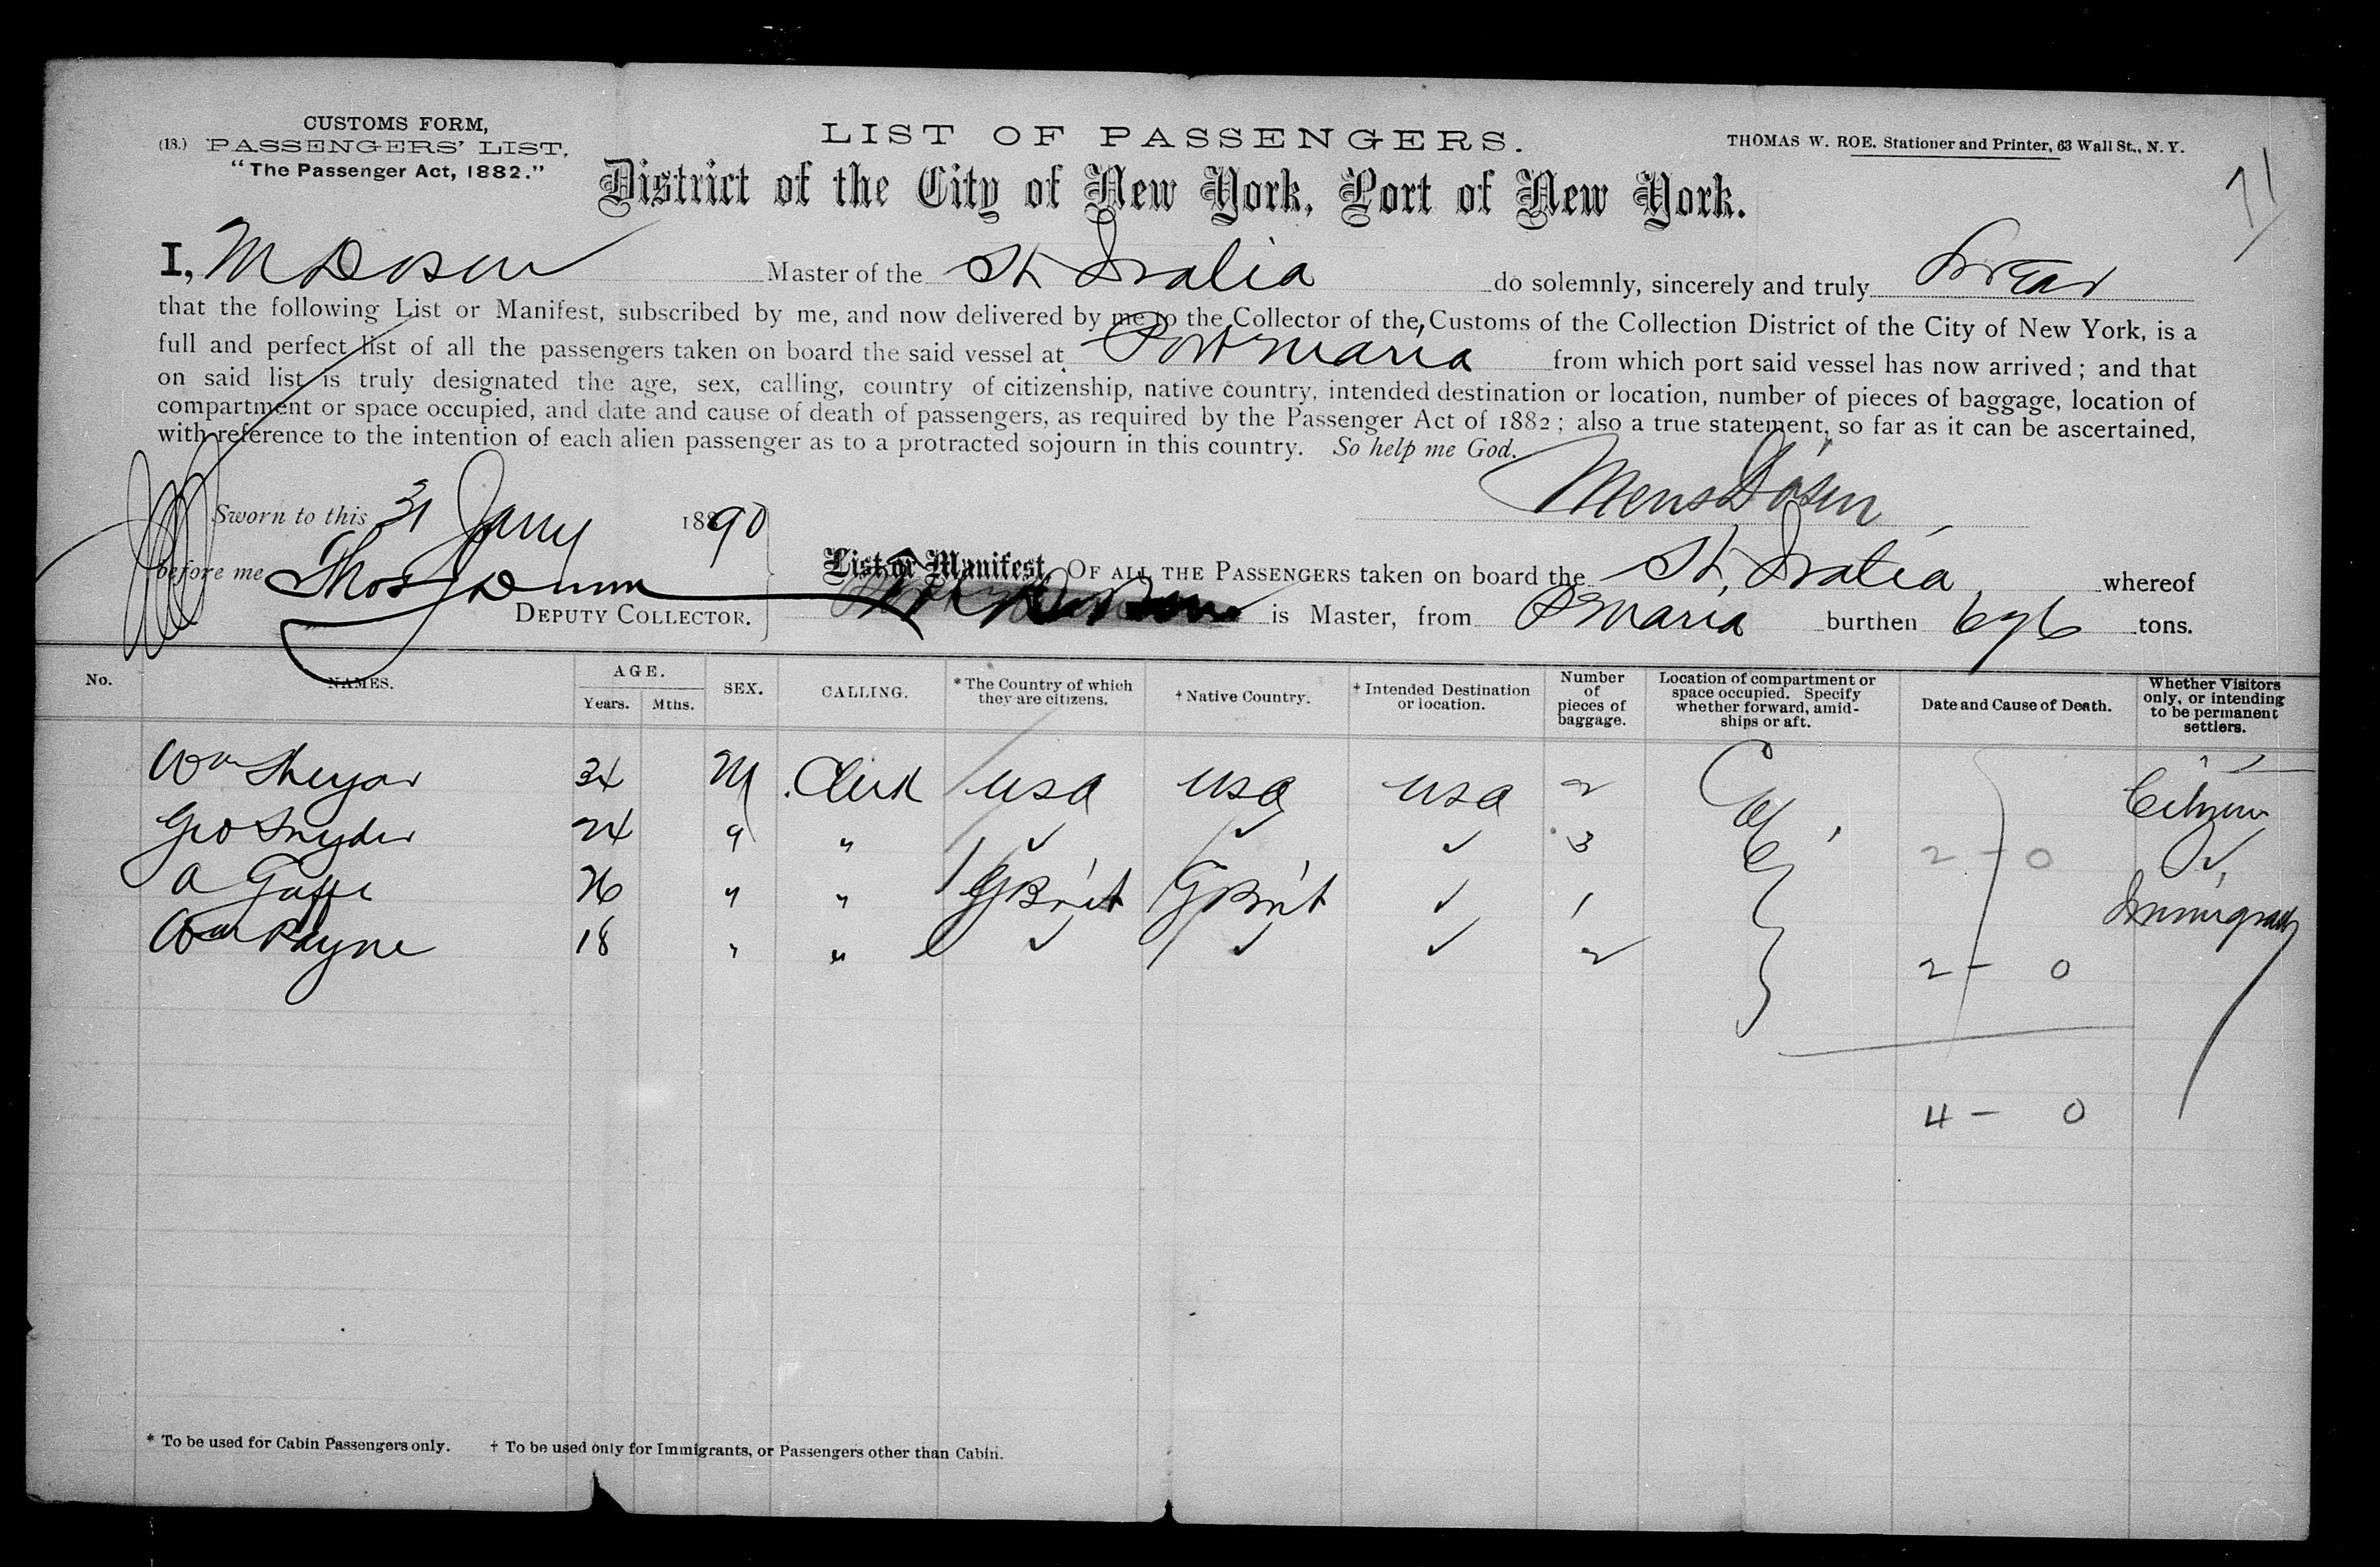 CUSTOMS FORM,
(18.) PASSENGERS' LIST.
"The Passenger Act, 1882."
LIST OF PASSENGERS.
THOMAS W. ROE. Stationer and Printer, 63 Wall St., N. Y.
71
District of the City of New York, Port of New York.
I, M Dosen Master of the St Iralia do solemnly, sincerely and truly swear
that the following List or Manifest, subscribed by me, and now delivered by me to the Collector of the Customs of the Collection District of the City of New York, is a
full and perfect list of all the passengers taken on board the said vessel at Port Maria from which port said vessel has now arrived; and that
on said list is truly designated the age, sex, calling, country of citizenship, native country, intended destination or location, number of pieces of baggage, location of
compartment or space occupied, and date and cause of death of passengers, as required by the Passenger Act of 1882; also a true statement, so far as it can be ascertained,
with reference to the intention of each alien passenger as to a protracted sojourn in this country. So help me God.
Mens Dosen
Sworn to this 31 Jany 1890
before me Thos J Dunn
DEPUTY COLLECTOR.
List or Manifest OF ALL THE PASSENGERS taken on board the St. Iralia whereof
is Master, from P Maria burthen 696 tons.
No. NAMES. AGE. Years. Mths. SEX. CALLING. * The Country of which they are citizens. † Native Country. † Intended Destination or location. Number of pieces of baggage. Location of compartment or space occupied. Specify whether forward, amidships or aft. Date and Cause of Death. Whether Visitors only, or intending to be permanent settlers.
Wm 34 M Clerk USA USA USA 2 Citizen
Geo Snyder 24 " " ✓ ✓ ✓ 3 2 - 0 ✓
A Gaffe 26 " " G Brit G Brit ✓ 1 Immigrants
Wm Payne 18 " " ✓ ✓ ✓ 2 2 - 0
4 - 0
* To be used for Cabin Passengers only. † To be used only for Immigrants, or Passengers other than Cabin.